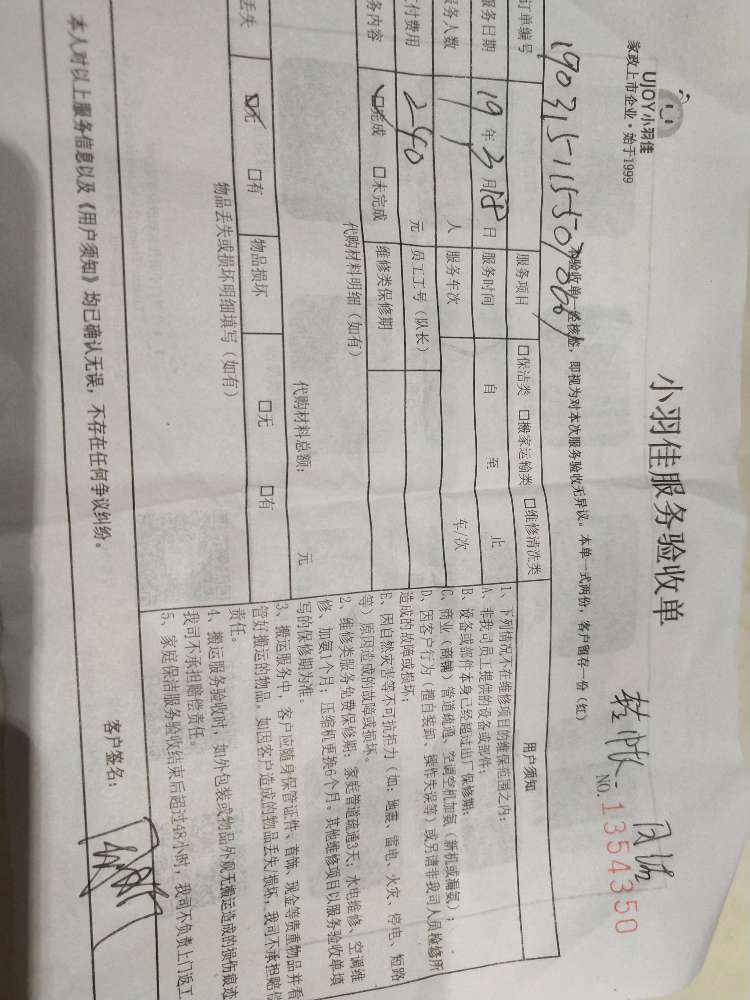 UJOY小羽佳
家政上市企业·始于1999
小羽佳服务验收单
NO.1354350
本验收单一经核签，即视为对本次服务验收无异议。本单一式两份，客户留存一份（红）
订单编号
服务项目 □保洁类 □搬家运输类 □维修清洗类
服务日期 19 年 3 月 18 日 服务时间 自 至 止
服务人数 人 服务车次 车/次
付费用 240 元 员工工号（队长）
务内容 ☑完成 □未完成 维修类保修期
代购材料明细（如有）
代购材料总额： 元
丢失 ☑无 □有 物品损坏 □无 □有
物品丢失或损坏明细填写（如有）
用户须知
1、下列情况不在维修项目的维保范围之内：
A、非我司员工提供的设备或部件；
B、设备或部件本身已经超过出厂保修期；
C、商业（商铺）管道疏通、空调空机加氨（新机或漏氨）；
D、因客户行为（擅自装卸、操作失误等）或另请非我司人员检修所
造成的故障或损坏；
E、因自然灾害等不可抗拒力（如：地震、雷电、火灾、停电、短路
等）原因造成的故障或损坏。
2、维修类服务免费保修期：家庭管道疏通3天；水电维修、空调维
修、加氨1个月；压缩机更换6个月。其他维修项目以服务验收单填
写的保修期为准。
3、搬运服务中，客户应随身保管证件、首饰、现金等贵重物品并看
管好搬运的物品。如因客户造成的物品丢失/损坏，我司不承担赔偿
责任。
4、搬运服务验收时，如外包装或物品外观无搬运造成的损伤痕迹
我司不承担赔偿责任。
5、家庭保洁服务验收结束后超过48小时，我司不负责上门返工
本人对以上服务信息以及《用户须知》均已确认无误，不存在任何争议纠纷。
客户签名：